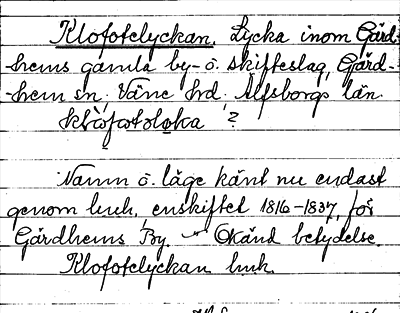 Klofotelyckan. Lycka inom Gärd-
hems gamla by- o. skifteslag, Gärd-
-hem sn, Väne hd. Älfsborgs län.
Namn o. läge känt nu endast
genom huh, enskiftet 1816-1837, för
Gärdhems By. Okänd betydelse.
Klofotelyckan huh.